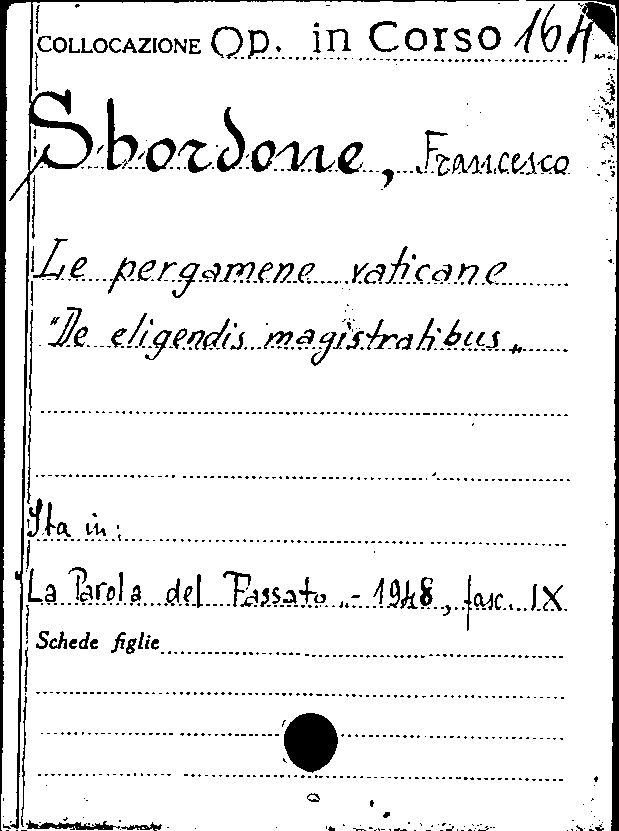 COLLOCAZIONE Op. in Corso 164
Sbordone, Francesco
Le pergamene vaticane
"De eligendis magistratibus„
Sta in:
La Parola del Passato„- 1948, fasc. IX
Schede figlie